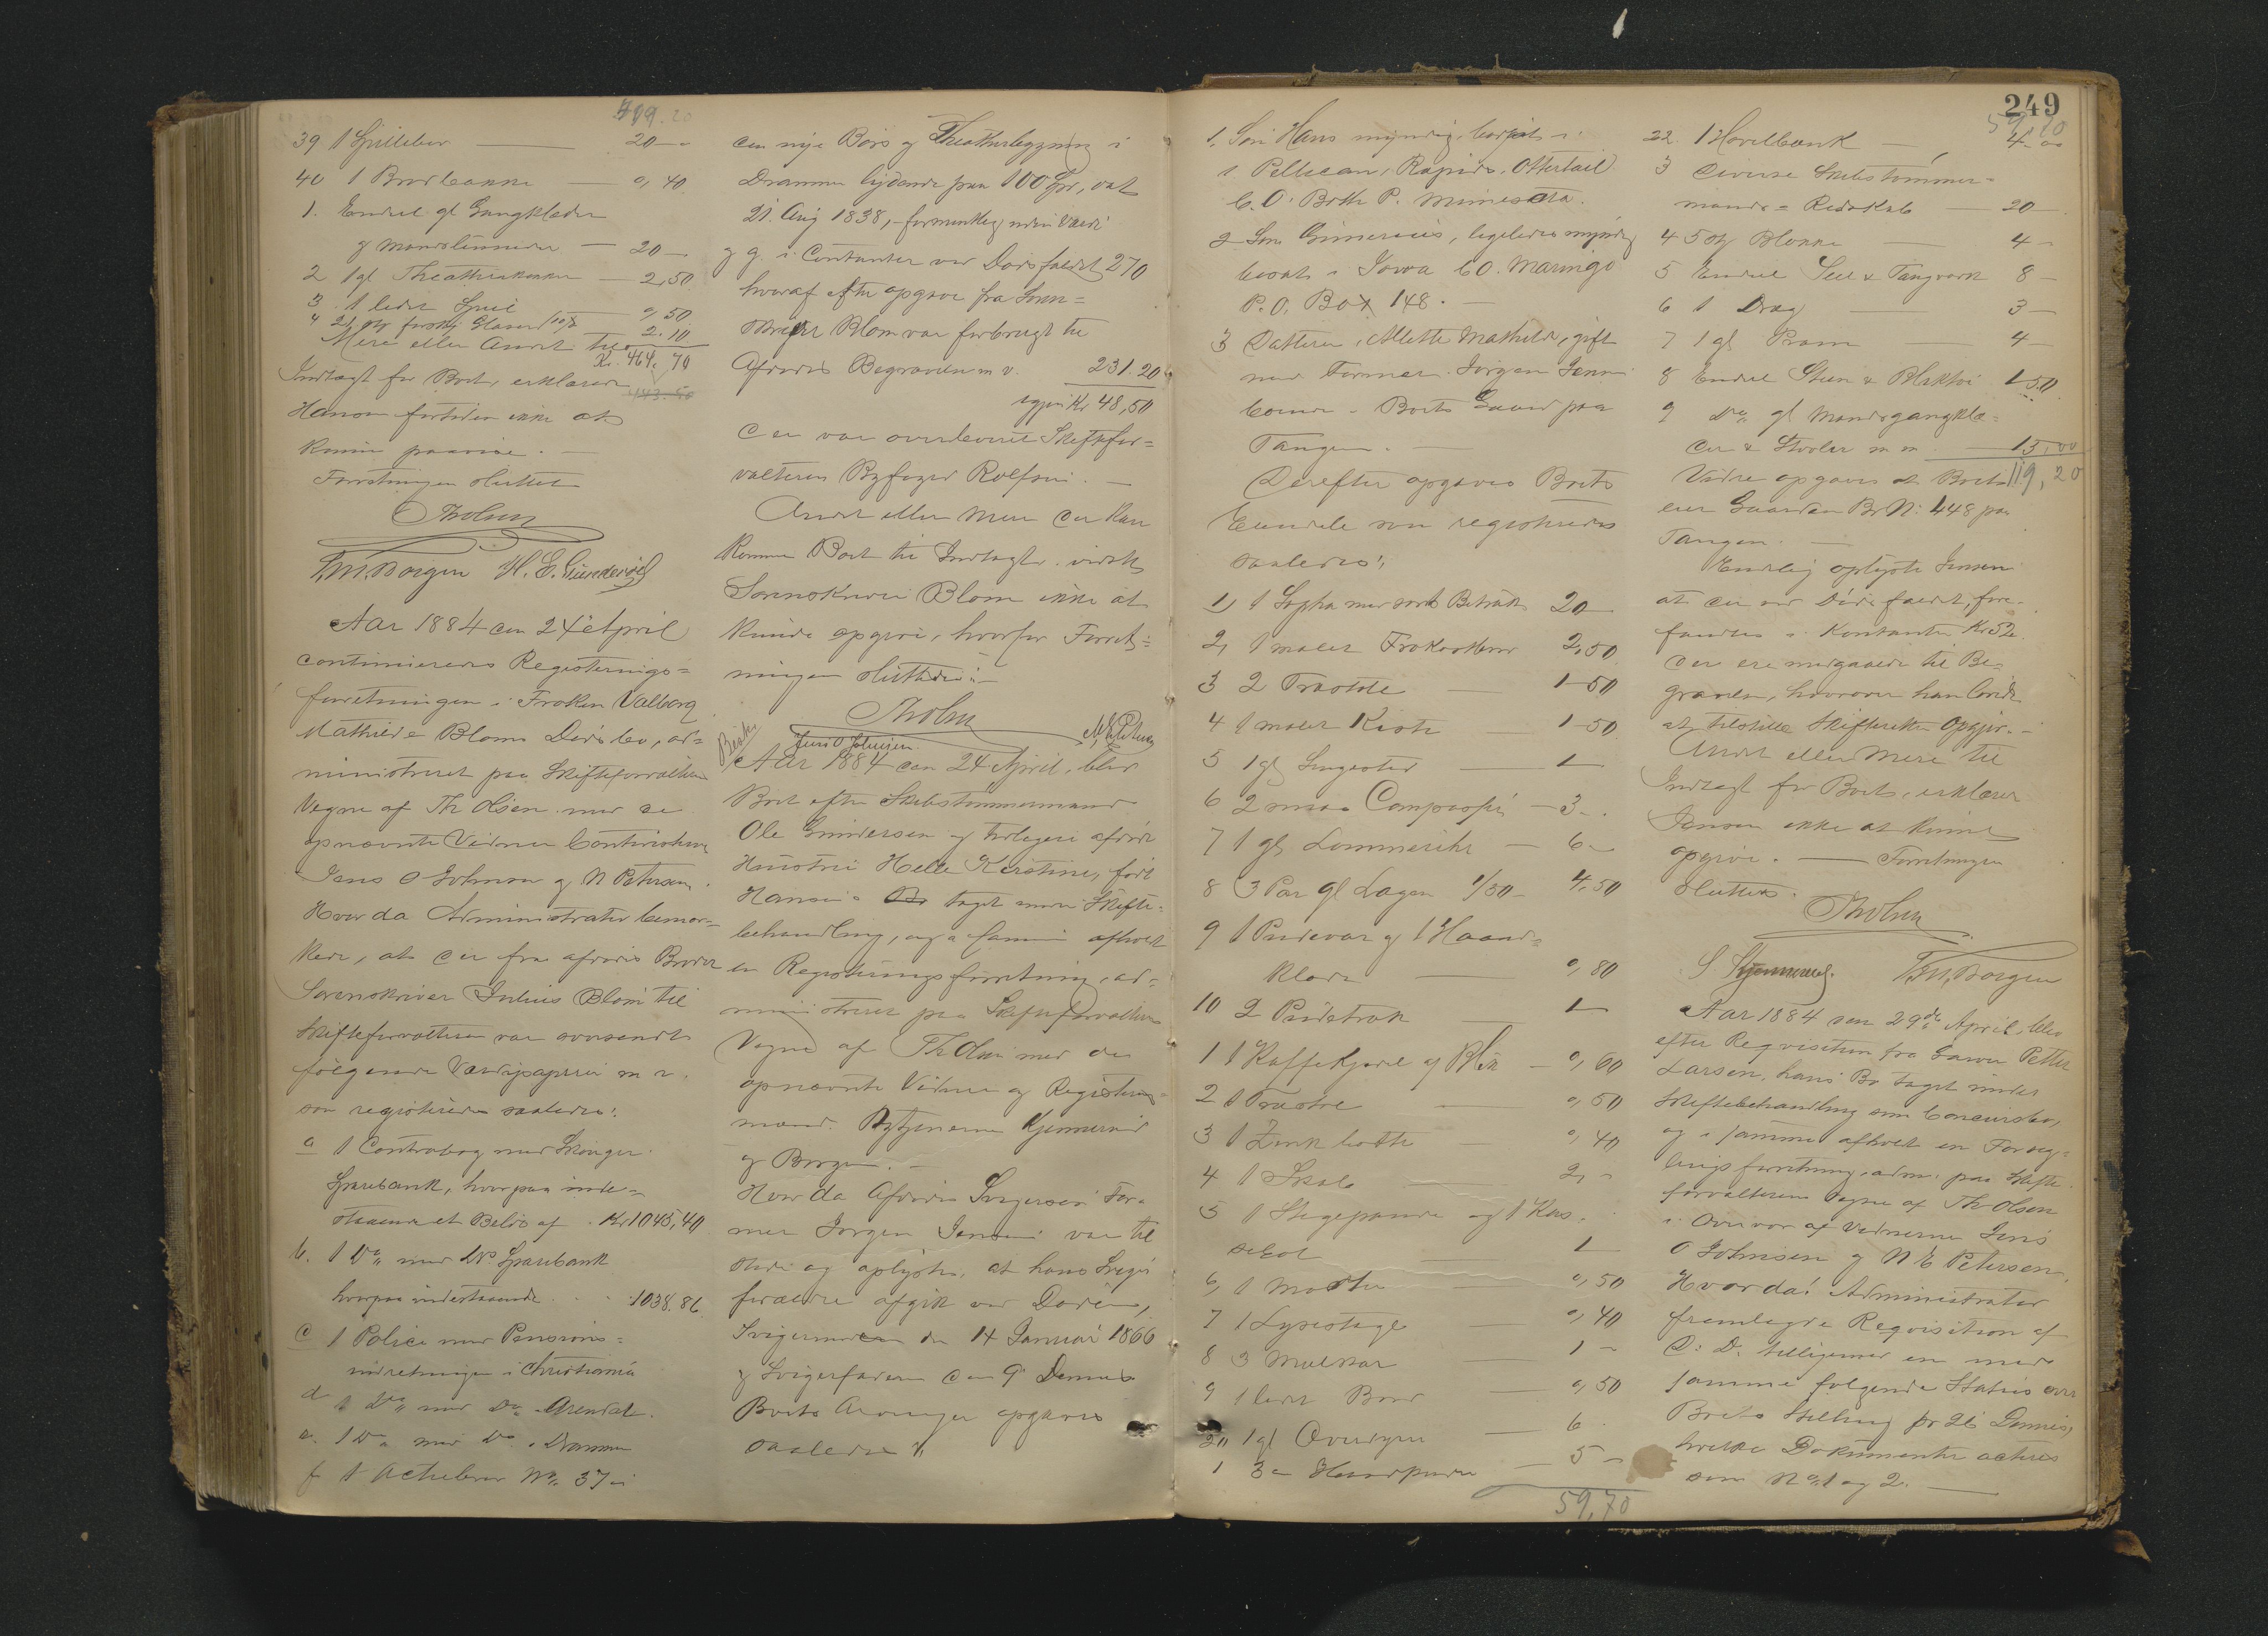 419.20
39 1 Spillebor — 20 –
40 1 Brodbakke — „ 40
1. Endeel gl Gangklæder
g Mandslinneder — 20 —
2 1 gl Theatherkikker — 2,50
3 1 lidet Speil — „ 50
2.10
Mere eller Andet til
Kr. 464. 70
Indtægt for Boet, erklærede
Hansen fortiden ikke at
kunne paavise. —
Forretningen sluttet
Tholsen
T. M. Borgen H. E. Gundersen
Aar 1884 den 24 April
continueredes Registerings-
forretningen i Frøken Valborg
Mathilde Bloms Dødsbo, ad-
ministreret paa Skifteforvalterens
Vegne af Th Olsen med de
opnævnte Vidner Contorist
Jens O Johnsen og N Petersen.
Hvor da Administrator bemær-
kede, at der fra afdødes Broder
Sorenskriver Julius Blom til
Skifteforvalteren var oversendt
følgende Værdipapirer m v.
som registreredes saaledes:
a 1 Contrabog med Skouger
Sparebank, hvorpaa inde-
staaende et Beløb af Kr 1045,40
b. 1 Do med Ds Sparebank
hvorpaa indestaaende 1038.86
c 1 Police med Pensions-
indretningen i Christiania
d 1 Do med Do Arendal.
e. 1 Do med Do i Drammen
f 1 Actiebrev No 37 i
den nye Børs og Theaterbygning i
Drammen lydende paa 100 Spd, dat
21. Aug 1838, formentlig uden Værdi
g g. i Contanter ved Dødsfaldet 270
hvoraf efter opgave fra Soren-
skriver Blom var forbrugt til
Afdødes Begravelse m v. 231.20
igjen Kr 48,50
der var overleveret Skiftefor-
valteren Byfoged Rolfsen. —
Andet eller Mere der kan
komme Boet til Indtægt, vidste
Sorenskriver Blom ikke at
kunde opgive, hvorfor Forret-
ningen sluttedes: —
Tholsen
Jens O Johnsen N E Petersen
Aar 1884 den 24 April, blev
Boet efter Skibstømmermand
Ole Gundersen og tidligere afdøde
Hustru Helle Kirstine, født
Hansen taget under Skifte-
behandling, og i samme afholdt
en Registeringsforretning, ad-
ministreret paa Skifteforvalterens
Vegne af Th Olsen med de
opnævnte Vidner og Registerings-
mænd. Bytjenerne Kjennerud
g Borgen. —
Hvor da Afdødes Svigersøn For-
mer Jørgen Jensen var til
stede og oplyste, at hans Sviger
forældre afgik ved Døden,
Svigermoderen den 14 Januar 1866
g Svigerfaderen den 9 Dennes
Boets Arvinger opgaves
saaledes:
249
1. Søn Hans myndig, bosat i
i Pellican, Rapids. Ottertail
C. O. P. Minnesota.
2 Søn Gunerius, ligeledes myndig
bosat i Iowa CO. Maringo
P. O. Box 148. —
3 Datteren, Allette Mathilde, gift
med Formier Jørgen Jensen
boende i Boets Gaard paa
Tangen. —
Derefter opgaves Boets
Eiendele som registreredes
saaledes:
1, 1 Sopha med sort Betræk 20 —
2, 1 malet Frokostbord 2,50
3 2 Træstole — 1 50
4 1 malet Kiste 1 50
5 1 gl Sengested — 1 —
6 2 smaa — 3 –
7 1 gl Lommeuhr — 6 —
8 3 Par gl Lagen 1/50 – 4,50
9 1 Pudevar g 1 Haand-
klæde — „ 80
10 2 Pudetræk — 1 —
1 1 Kaffekjedel af Blik — „ 60
2 1 Træstol — „ 50
3 1 Zink bøtte — „ 40
4 1 Skab — 2, –
5 1 Stegepande og 1 Kas-
serol — 1 —
6, 1 — „ 50
7 1 Lysestage — „ 40
8 3 — 1 –
9 1 lidet Bord — „ 50
20 1 gl Overdyne — 6
1 3 Hovedpuder — 5 –
59,70
59,70
22 1 Høvelbænk — 4 –
3 Diverse Skibstømmer-
mands- Redskab 20 —
4 5 Blokke — 4 –
5 Endeel Seil & Taugværk 8 –
6 1 Drag — 3 —
7 1 gl Pram — 4 —
8 Endeel Steen & Bliktøi 1 50
9 Do gl Mandsgangklæ-
der & Støvler m m — 15,00
119,20
Videre opgaves at Boet
eier Gaarden Br No 448 paa
Tangen. —
Endelig oplyste Jensen
at der ved Dødsfaldet, fore-
fandtes i Kontanter Kr 52
der ere medgaaede til Be-
gravelsen, hvorover han lovede
at tilstille Skifteretten Opgjør. —
Andet eller Mere til
Indtægt for Boet, erklærer
Jensen ikke at kunne
opgive. — Forretningen
sluttes.
Tholsen
S Kjennerud. T. M. Borgen
Aar 1884 den 29de April, blev
efter Reqvisition fra Garver Petter
Larsen, hans Bo taget under
Skiftebehandling som Concursbo,
og i samme afholdt en Forseg-
lingsforretning, adm. paa Skifte-
forvalterens Vegne af Th Olsen
i Overvær af Vidnerne Jens
O Johnsen g N E Petersen.
Hvor da: Administrator
fremlagde Reqvisition af
D: D: tilligemed en med
samme følgende Status over
Boets Stilling pr 26 Dennes,
hvilke Dokumenter acteres
som No 1 og 2. —